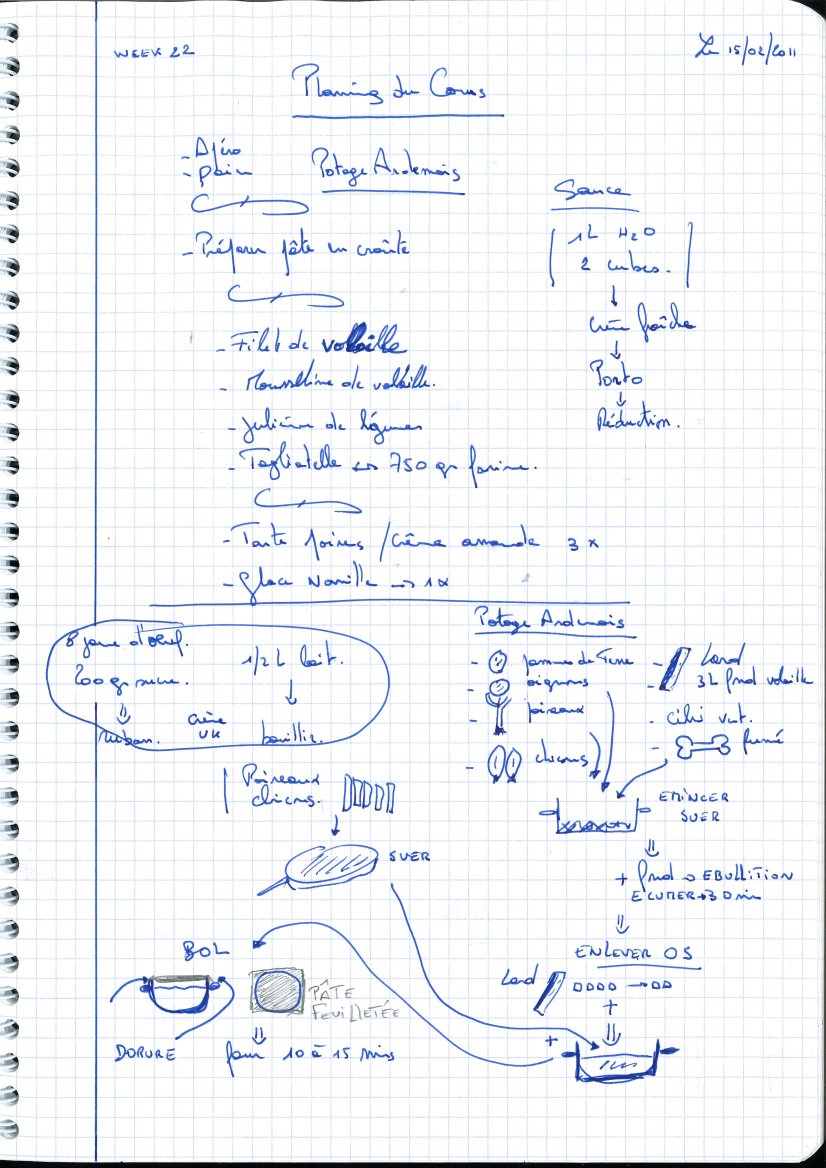 WEEK 22
Le 15/02/2011
Planning du Cours
- Apéro
- pain
Potage Ardennais
- Préparer pâte en croûte
- Filet de volaille
- Mousseline de volaille.
- Julienne de légumes
- Tagliatelle ↔ 750 gr farine.
- Tarte poires / Crème amande 3 x
- glace Vanille → 1x
Sauce
1L H2O
2 cubes.
↓
Crème fraîche
↓
Porto
↓
Réduction.
8 jaune d'oeuf.
200 gr sucre.
⇓
ruban.
crème
UK
1/2 L lait.
↓
bouillir.
Potage Ardennais
- pommes de Terre
oignons
- poireaux
- chicons
- Lard
- 3L fond volaille
- céleri vert.
- fumé
EMINCER
SUER
⇓
+ fond → EBULLITION
ECUMER → 30 min
⇓
ENLEVER OS
Lard
+
⇓
+
Poireaux
chicons.
↓
SUER
BOL
PÂTE
FEUILLETÉE
DORURE
⇓
four 10 à 15 mins